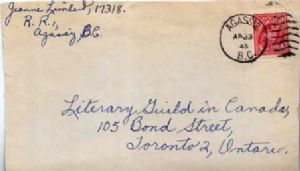 Jeanne 17318.
R. R. 1,
Agassiz B.C.
AGASSIZ
45
B.C.
Literary Guild in Canada,
105 Bond Street,
Toronto 2, Ontario.